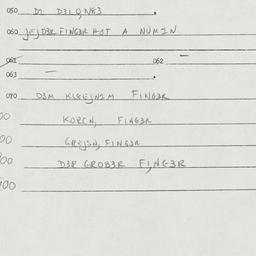 050 DI D3LQNE3 .
060 JEJD3R FING3R HOT A NUMIN
061 062 —
063 — .
070 D3M KLEEJN3M FING3R
00 KORCN, FING3R
00 GREJSN, FING3R
00 D3R GROB3R FI,NG3R
700